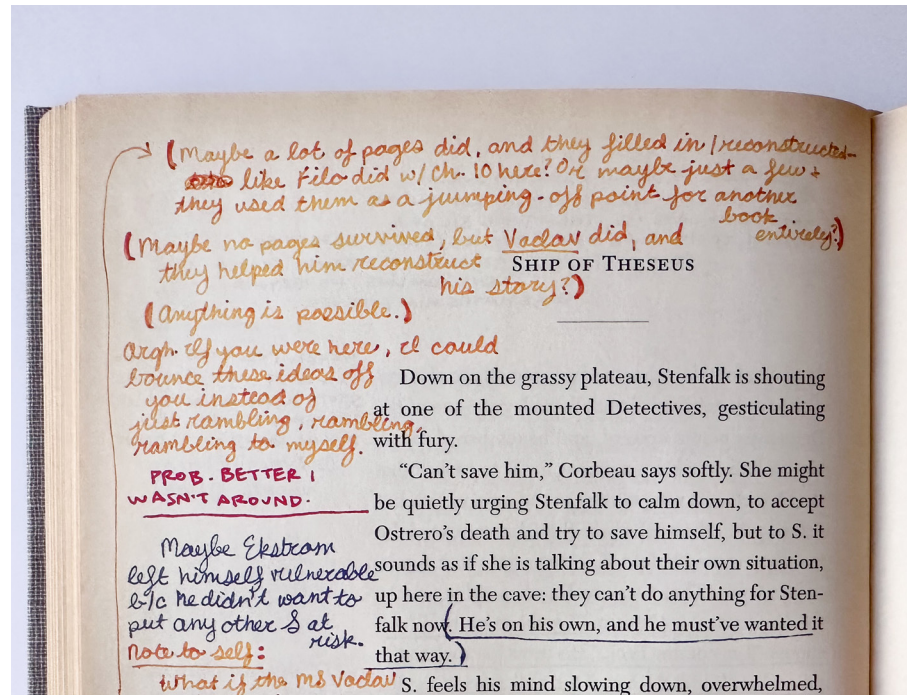 (Maybe a lot of pages did, and they filled in / reconstructed-
like Filo did w/ Ch. 10 here? Or maybe just a few +
they used them as a jumping-off point for another
book entirely?)
(Maybe no pages survived, but Vaclav did, and
they helped him reconstruct
his story?)
SHIP OF THESEUS
(Anything is possible.)
Argh. If you were here, I could
bounce these ideas off
you instead of
just rambling, rambling,
rambling to myself.
PROB. BETTER I
WASN'T AROUND.
Maybe Ekstrom
left himself vulnerable
b/c he didn't want to
put any other S at
risk.
Note to self:
What if the MS Vaclav
Down on the grassy plateau, Stenfalk is shouting
at one of the mounted Detectives, gesticulating
with fury.
“Can’t save him,” Corbeau says softly. She might
be quietly urging Stenfalk to calm down, to accept
Ostrero’s death and try to save himself, but to S. it
sounds as if she is talking about their own situation,
up here in the cave: they can’t do anything for Sten-
falk now. (He’s on his own, and he must’ve wanted it
that way.)
S. feels his mind slowing down, overwhelmed,